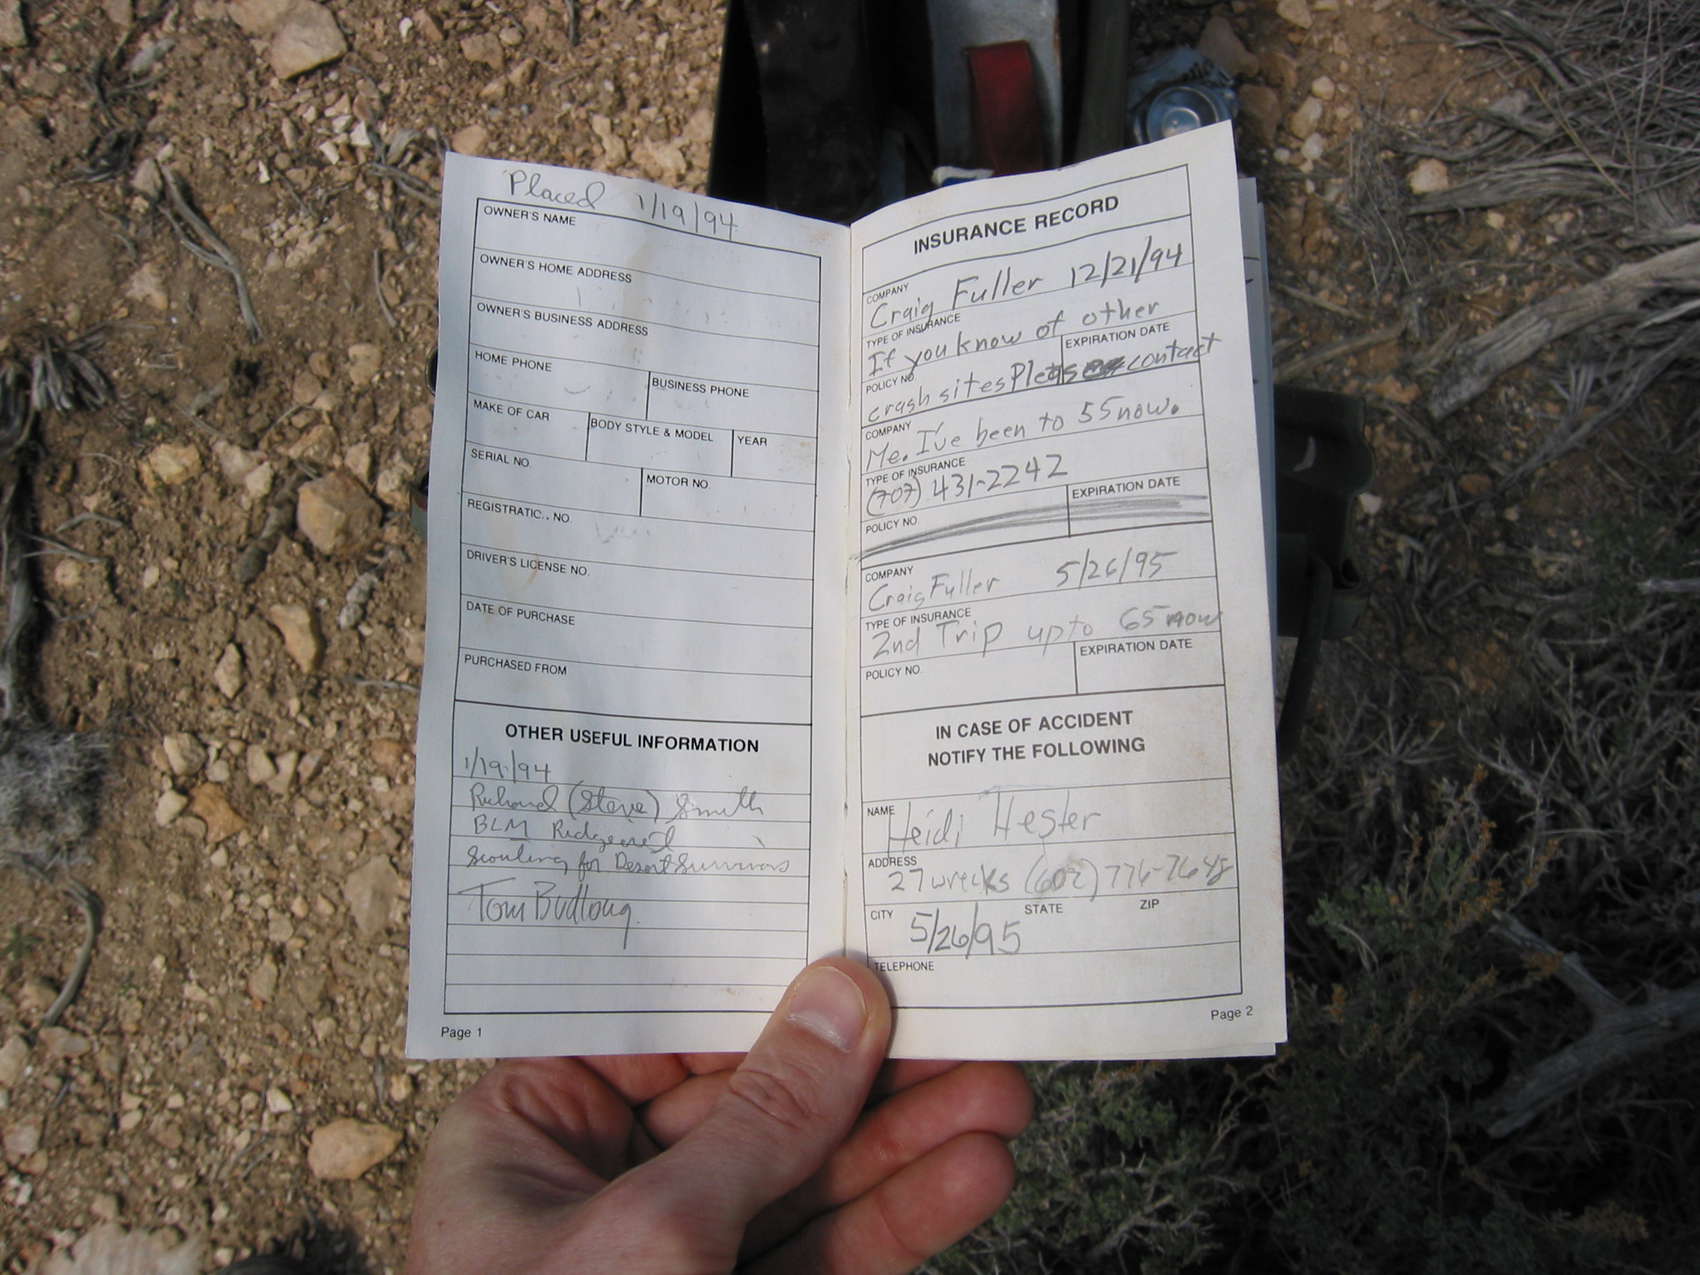 Placed 1/19/94
OWNER'S NAME
OWNER'S HOME ADDRESS
OWNER'S BUSINESS ADDRESS
HOME PHONE
BUSINESS PHONE
MAKE OF CAR
BODY STYLE & MODEL
YEAR
SERIAL NO.
MOTOR NO.
REGISTRATIC.. NO.
DRIVER'S LICENSE NO.
DATE OF PURCHASE
PURCHASED FROM
OTHER USEFUL INFORMATION
1/19/94
Richard (Steve) Smith
BLM Ridgecrest
Scouting for Desert Survivors
Tom Budlong
Page 1
INSURANCE RECORD
COMPANY
Craig Fuller 12/21/94
TYPE OF INSURANCE
If you know of other
EXPIRATION DATE
POLICY NO.
crash sites Please contact
COMPANY
Me. I've been to 55 now.
TYPE OF INSURANCE
(707) 431-2242
EXPIRATION DATE
POLICY NO.
COMPANY
Craig Fuller 5/26/95
TYPE OF INSURANCE
2nd Trip up to 65 now
EXPIRATION DATE
POLICY NO.
IN CASE OF ACCIDENT
NOTIFY THE FOLLOWING
NAME
Heidi Hester
ADDRESS
27 wrecks (602)
CITY
STATE
ZIP
5/26/95
TELEPHONE
Page 2